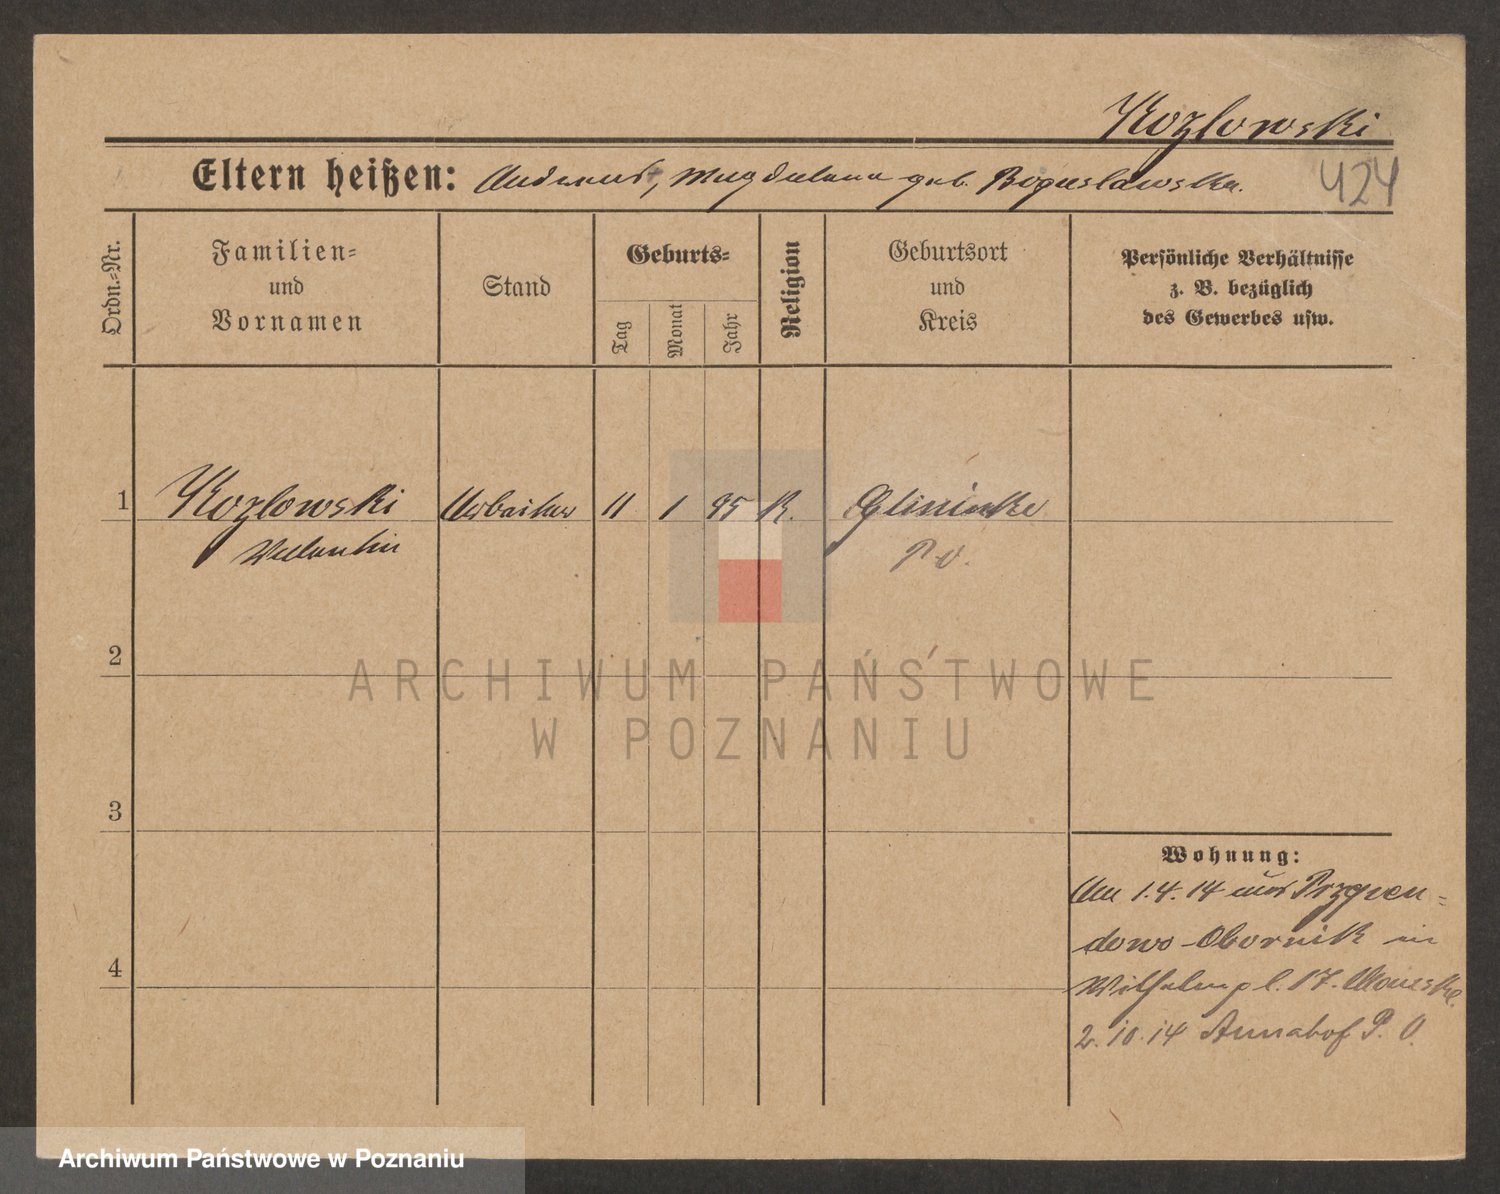 Kozlowski
Eltern heißen: Andreas, Magdalena geb. Boguslawska.
424
Ordn.-Nr.
Familien-
und
Vornamen
Stand
Geburts-
Tag
Monat
Jahr
Religion
Geburtsort
und
Kreis
Persönliche Verhältnisse
z. B. bezüglich
des Gewerbes usw.
1 Kozlowski Arbeiter 11 1 95 K. Glinienke
Valentin P. O.
2
3
4
ARCHIWUM PAŃSTWOWE
W POZNANIU
Wohnung:
Am 1.4.14 aus Przepen-
dowo Obornik in
Wilhelmpl. 17.
2.10.14 Annahof P. O.
Archiwum Państwowe w Poznaniu